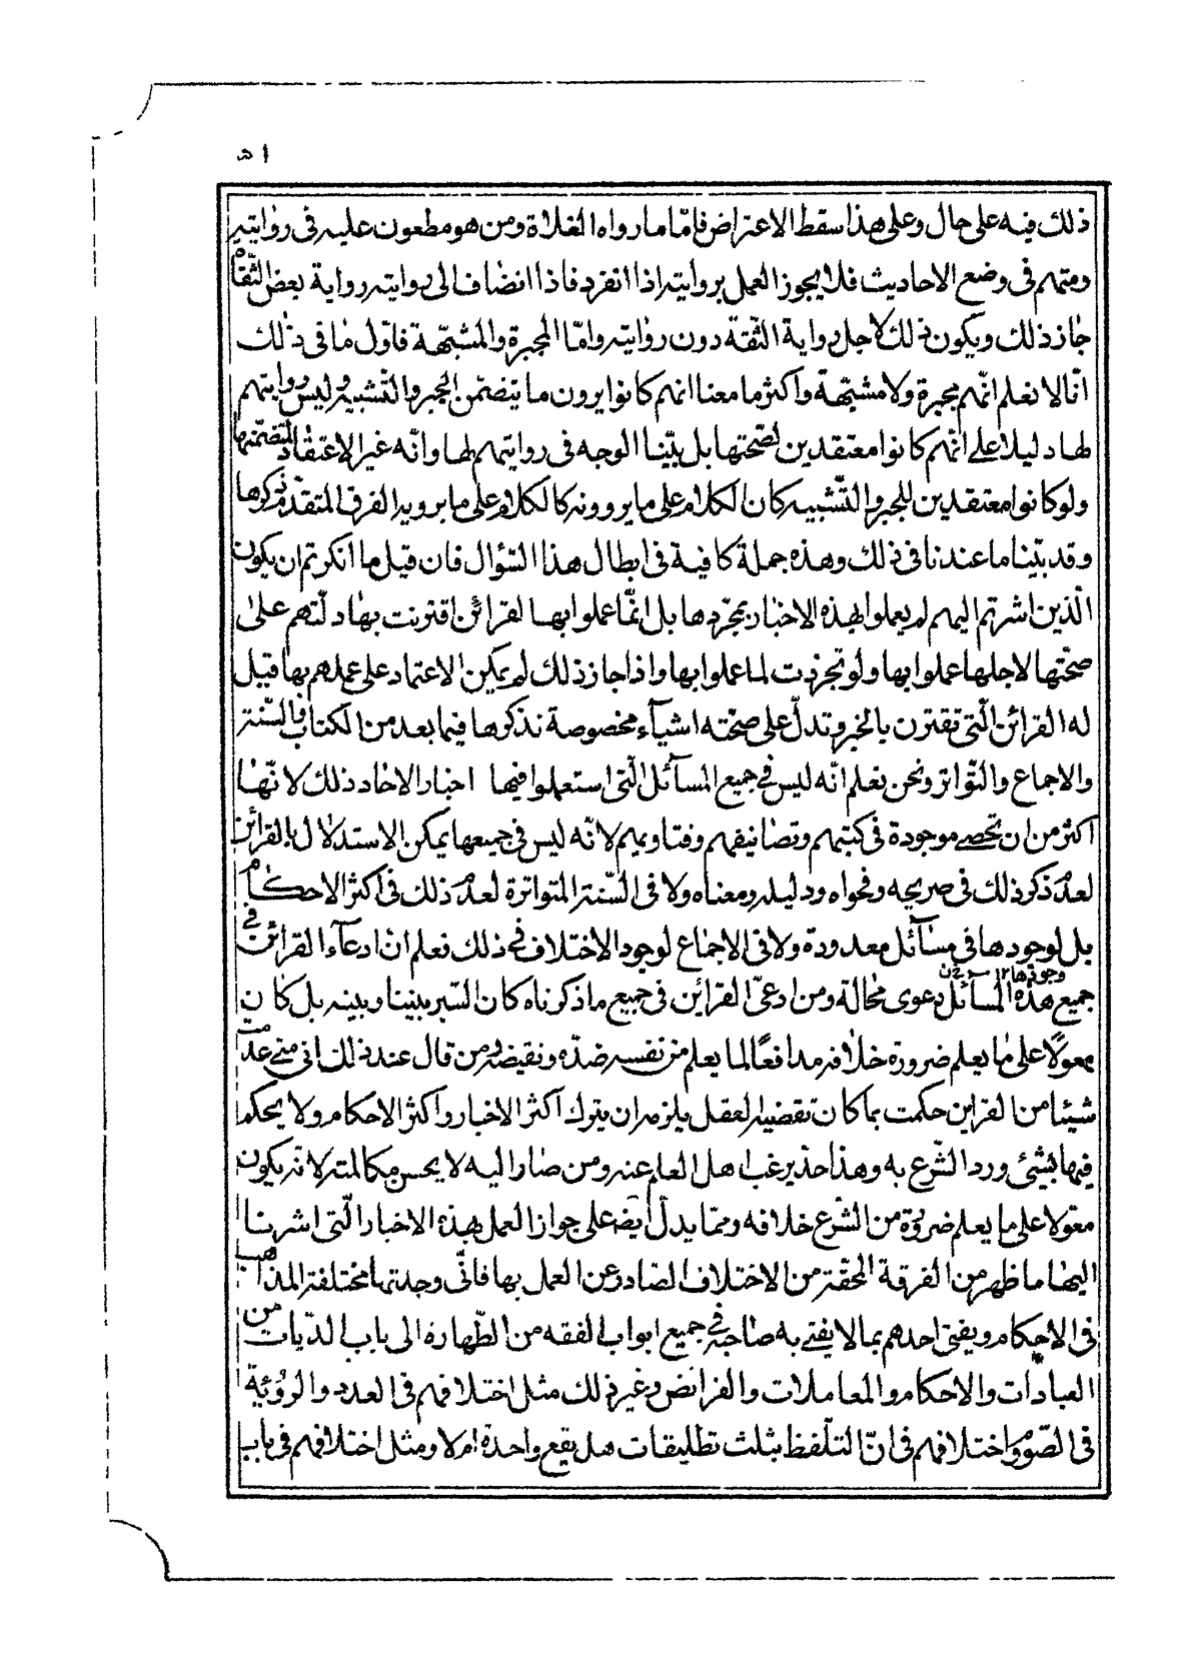 ٥١
ذلك فيه على حال وعلى هذا سقط الاعتراض فامّا ما رواه الغلاة ومن هو مطعون عليه فى روايته
ومتهم فى وضع الاحاديث فلا يجوز العمل بروايته اذا انفرد فاذا انضاف الى روايته رواية بعض الثّقاة
جاز ذلك ويكون ذلك لاجل رواية الثّقة دون روايته وامّا المجبرة والمشبّهة فاول ما فى ذلك
انّا لا نعلم انّهم مجبرة ولا مشبّهة واكثر ما معنا انهم كانوا يروون ما يتضمّن الجبر والتّشبيه وليس روايتهم
لها دليلا على انّهم كانوا معتقدين لصّحتها بل بيّنا الوجه فى روايتهم لها وانّه غير الاعتقاد لمتضمّنها
ولو كانوا معتقدين للجبر والتّشبيه كان الكلام على ما يروونه كالكلام على ما يرويه الفرق المتقدّم ذكرها
وقد بيّنا ما عندنا فى ذلك وهذه جملة كافية فى ابطال هذا السّؤال فان قيل ما انكرتم ان يكون
الّذين اشرتم اليهم لم يعملوا بهذه الاخبار بمجرّدها بل انّما عملوا بها لقرائن اقترنت بها دلّتهم على
صحّتها لاجلها عملوا بها ولو تجرّدت لما عملوا بها واذا جاز ذلك لم يمكن الاعتماد على عملهم بها قيل
له القرائن الّتى تقترن بالخبر وتدلّ على صحّته اشيآء مخصوصة نذكرها فيما بعد من الكتاب والسّنة
والاجماع والتّواتر ونحن نعلم انّه ليس فى جميع المسآئل الّتى استعملوا فيها اخبار الاحاد ذلك لانّها
اكثر من ان تحصى موجودة فى كتبهم وتصانيفهم وفتاويهم لانّه ليس فى جميعها يمكن الاستدلال بالقرائن
لعدم ذكر ذلك فى صريحه وفحواه ودليله ومعناه ولا فى السّنة المتواترة لعدم ذلك فى اكثر الاحكام
بل لوجودها فى مسآئل معدودة ولا فى الاجماع لوجود الاختلاف فى ذلك فعلم انّ ادعآء القرائن فى
وجودها ١٢
جميع هذه المسآئل دعوى محالة ومن ادعىّ القرائن فى جميع ما ذكرناه كان السّبر بيننا وبينه بل كان
معولّا على ما يعلم ضرورة خلافه مدافعًا لما يعلم من نفسه ضدّه ونقيضه ومن قال عند ذلك انى متى عدمت
شيئا من القراين حكمت بما كان تقضيه العقل يلزمه ان يترك اكثر الاخبار واكثر الاحكام ولا يحكم
فيها بشئ ورد الشّرع به وهذا حد يرغب اهل العلم عنه ومن صار اليه لا يحسن مكالمته لانّه يكون
معّولا على ما يعلم ضرورة من الشّرع خلافه وممّا يدلّ ايضه على جواز العمل بهذه الاخبار الّتى اشرنا
اليها ما ظهر من الفرقة المحّقة من الاختلاف الصّادر عن العمل بها فانّى وجدتها مختلفة المذاهب
فى الاحكام ويفتى احدهم بما لا يفتى به صاحبه فى جميع ابواب الفقه من الطّهارة الى باب الدّيات من
العبادات والاحكام والمعاملات والفرائض وغير ذلك مثل اختلافهم فى العدد والرؤية
فى الصّوم واختلافهم فى انّ التلّفظ بثلث تطليقات هل يقع واحدة ام لا ومثل اختلافهم فى باب